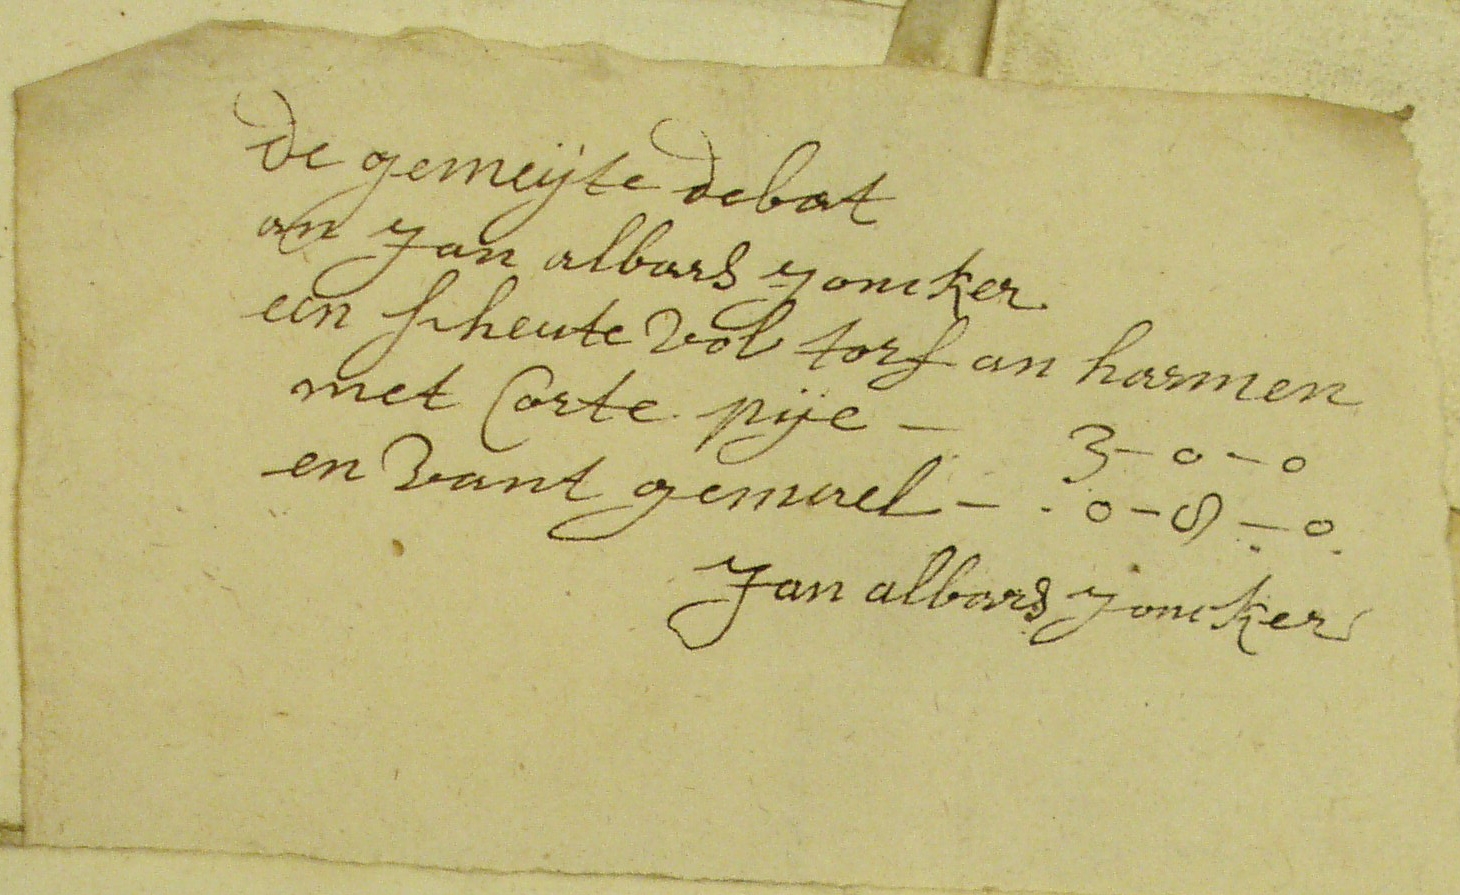 de gemeijte debat
an Jan albars Joncker
een scheute vol torf an harmen
met Corte pije – 3–0–0
en vant gemael – 0–8–0
Jan albars Joncker